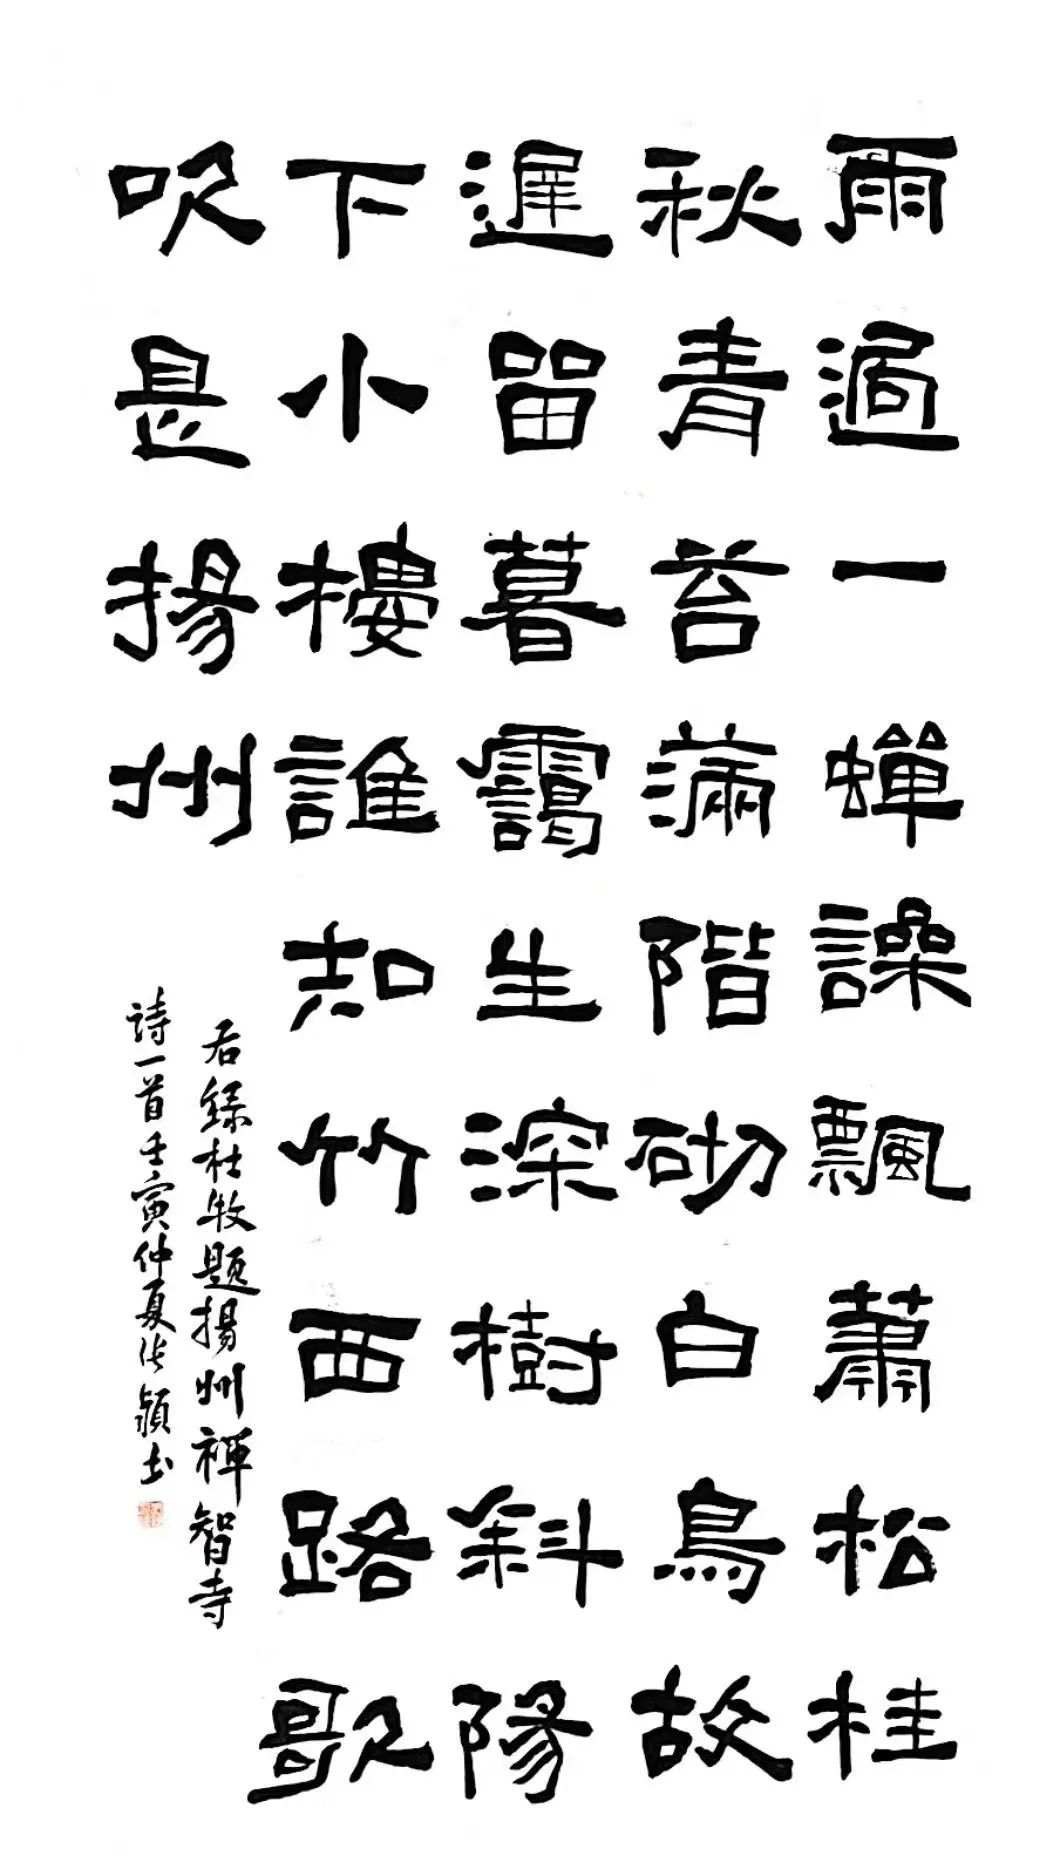 雨過一蟬譟飄蕭松桂
秋青苔滿階砌白鳥故
遲留暮靄生深樹斜陽
下小樓誰知竹西路歌
吹是揚州
右錄杜牧題揚州禪智寺
詩一首壬寅仲夏張穎書